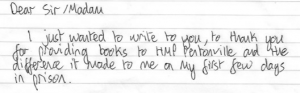 Dear Sir/Madam
I just wanted to write to you, to thank you
for providing books to HMP Pentonville and the
difference it made to me on my first few days
in prison.